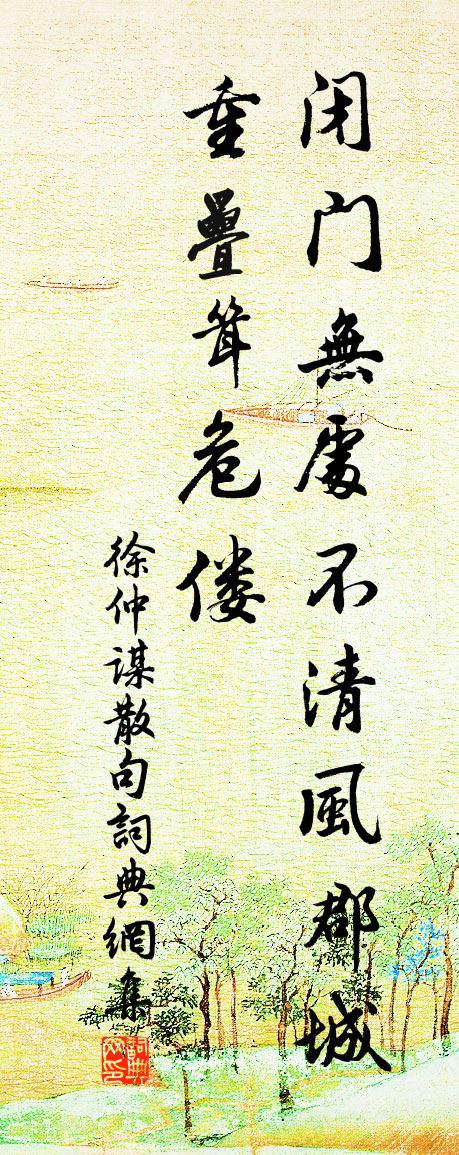 闭门無處不清風郡城
重疊耸危偻
徐仲谋散句詞典網集